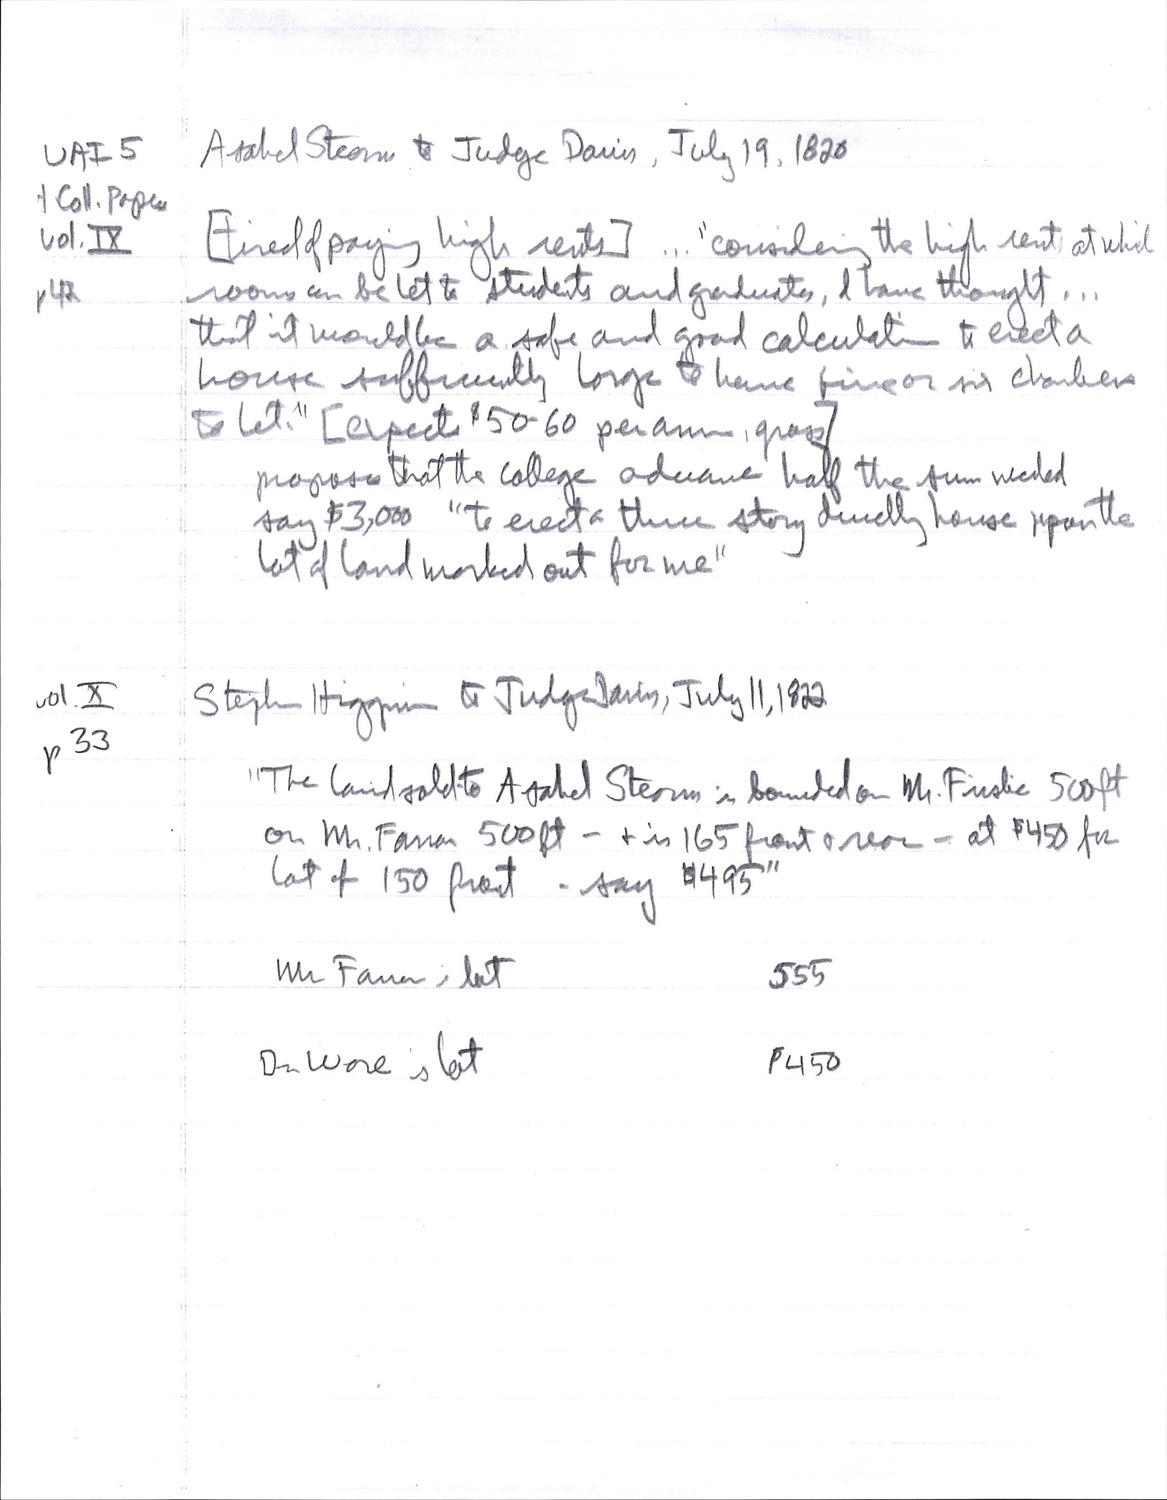 UAI 5
Coll. Papers
vol. IX
p 42
Asahel Stearns to Judge Davis, July 19, 1820
[tired of paying high rents] ... "considering the high rents at which
rooms can be let to students and graduates, I have thought ...
that it would be a safe and good calculation to erect a
house sufficiently large to have five or six chambers
to let." [expects $50-60 per annum, gross]
proposes that the college advance half the sum needed
say $3,000 "to erect a three story dwelly house upon the
lot of land marked out for me"
vol. X
p 33
Stephen Higginson to Judge Davis, July 11, 1822
"The land sold to Asahel Stearns is bounded on Mr. 500 ft
on Mr. Farrar 500 ft - + is 165 front & rear - at $450 for
lot of 150 front - say $495"
Mr Farrar's lot 555
Dr Ware's lot $450